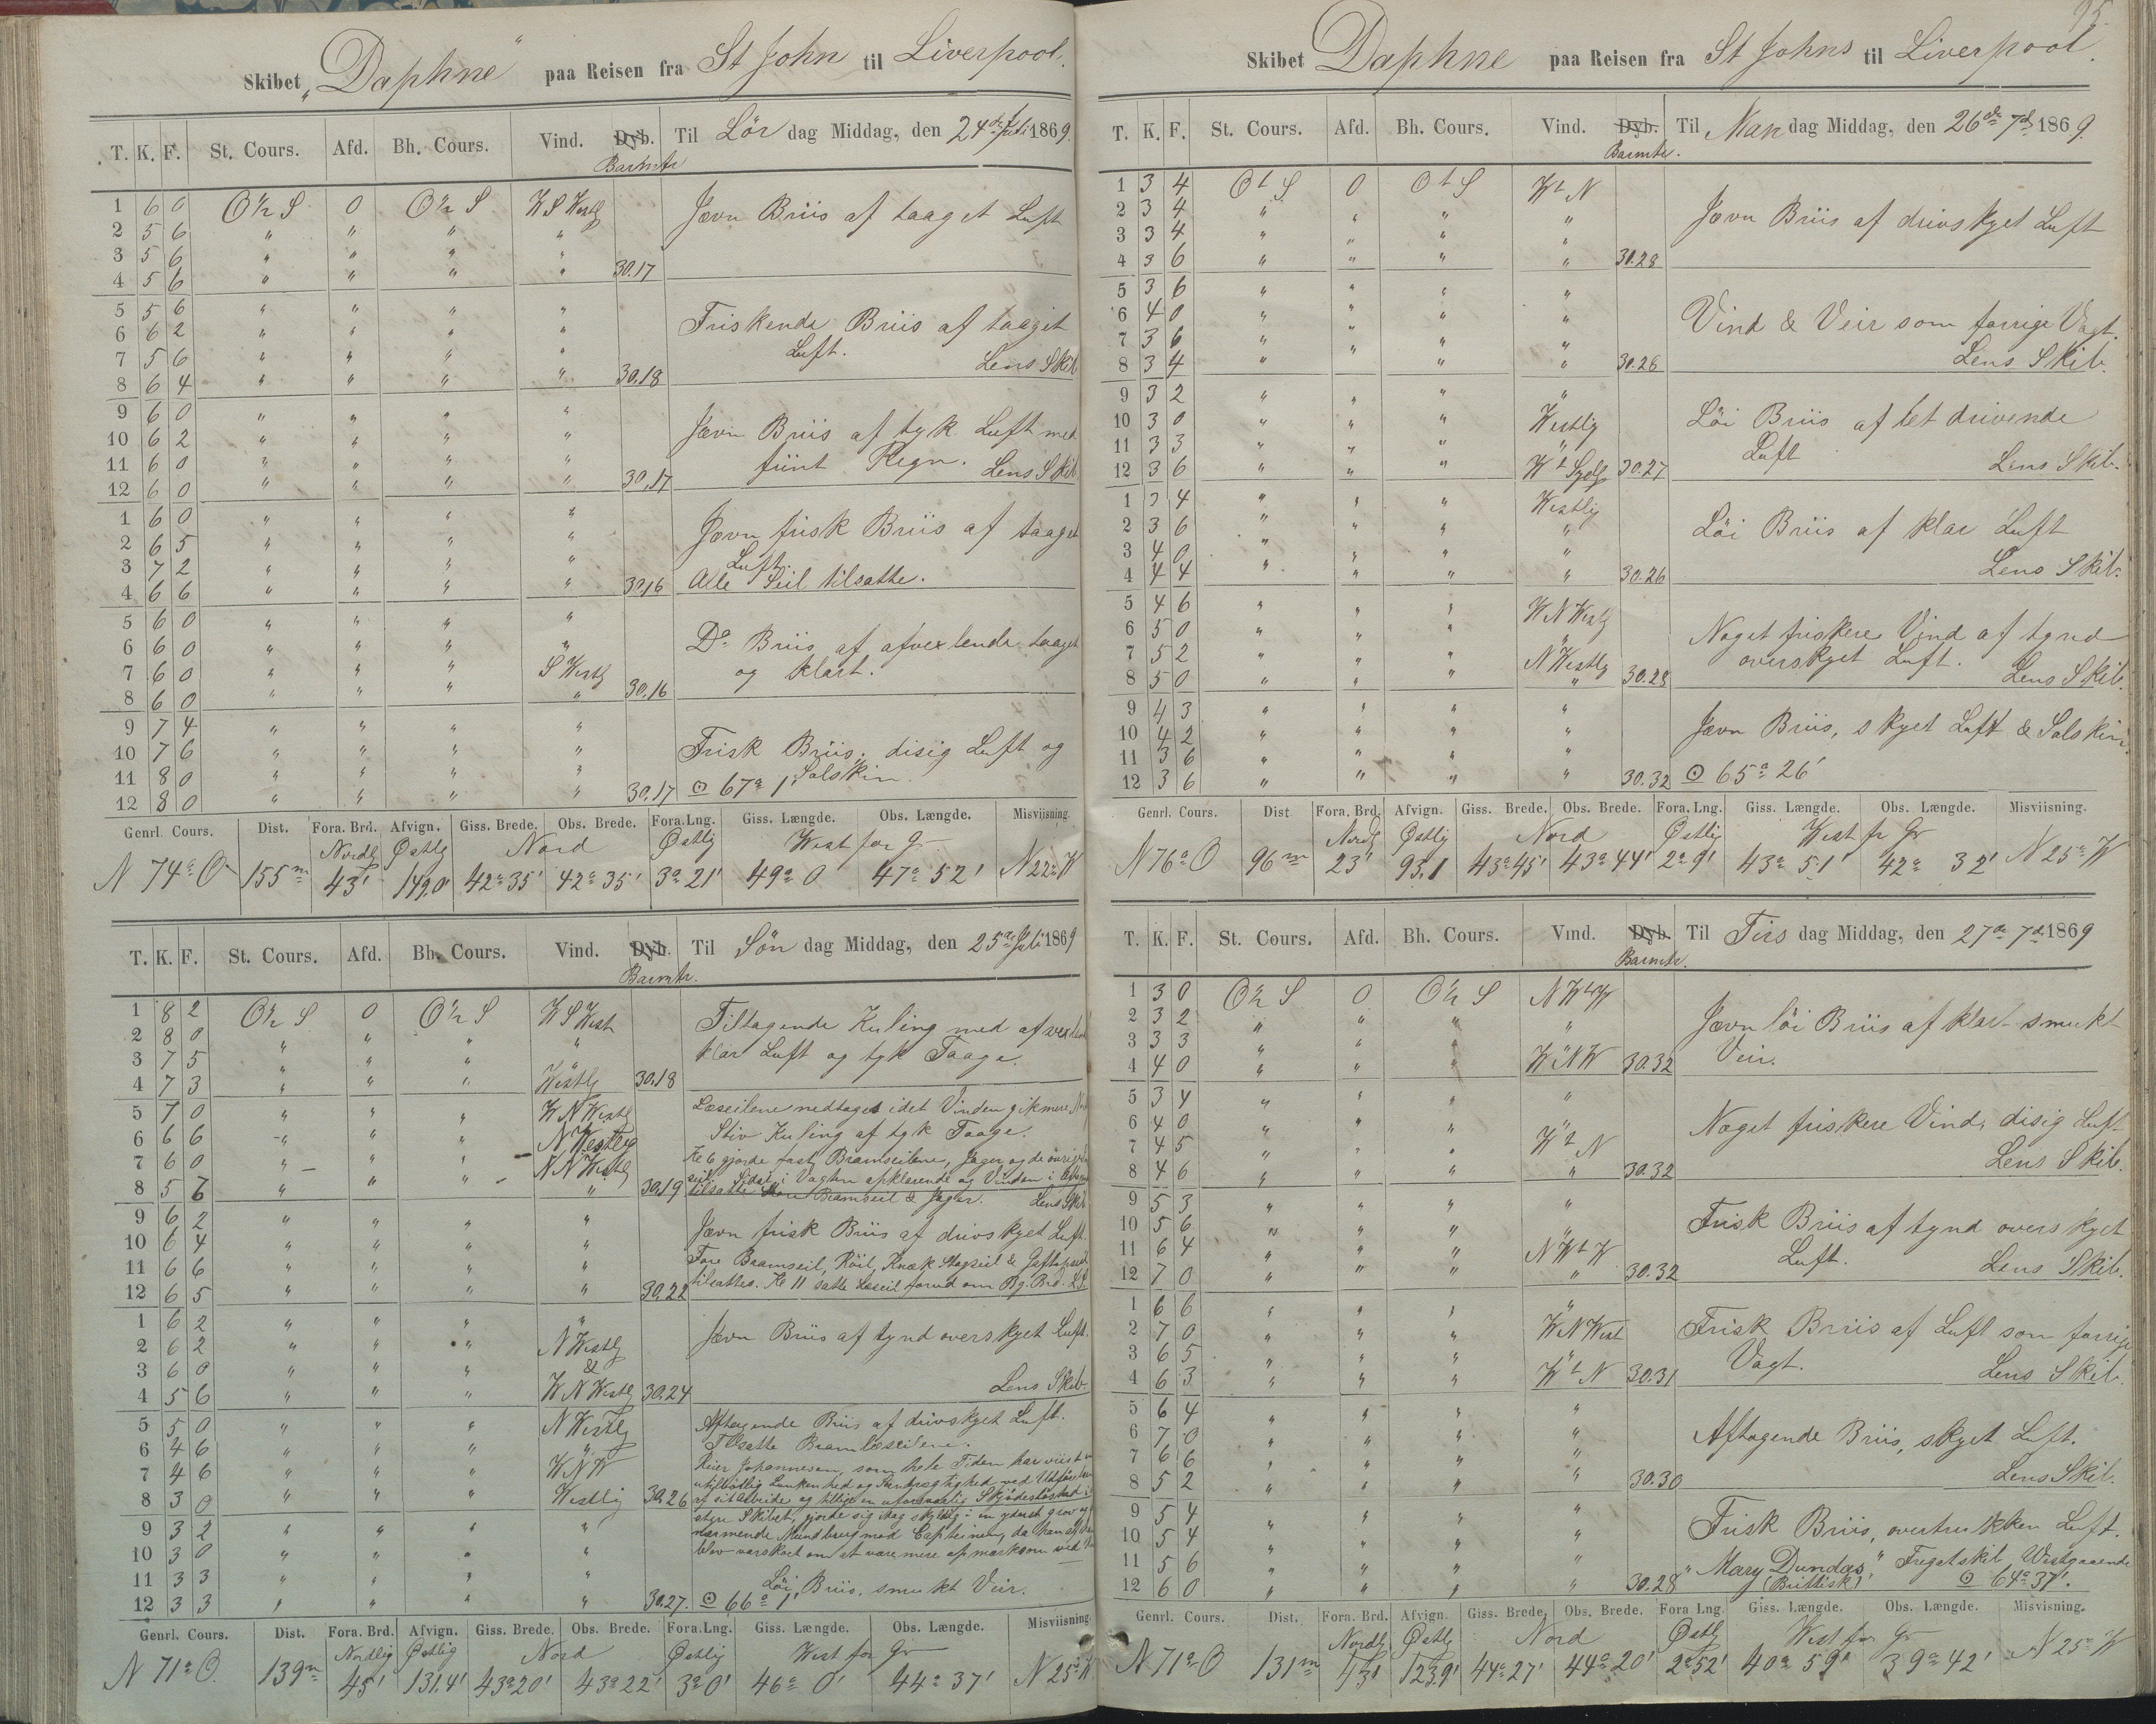 Skibet „Daphne" paa Reisen fra St John til Liverpool.
T. K. F. St. Cours. Afd. Bh. Cours. Vind. Dyb. Barmtr Til Lör dag Middag, den 24de Juli 1869.
1 6 0 O½ S 0 O½ S W S Westlg Jævn Briis af taaget Luft
2 5 6 " " " "
3 5 6 " " " "
4 5 6 " " " " 30.17
5 5 6 " " " " Friskende Briis af taaget
6 6 2 " " " " Luft.
7 5 6 " " " " Lens Skib
8 6 4 " " " " 30.18
9 6 0 " " " " Jævn Briis af tyk Luft med
10 6 2 " " " " fiint Regn. Lens Skib
11 6 0 " " " "
12 6 0 " " " " 30.17
1 6 0 " " " " Jævn frisk Briis af taaget
2 6 5 " " " " Luft.
3 7 2 " " " " Alle Seil tilsatte.
4 6 6 " " " " 30.16
5 6 0 " " " " Do Briis af afvexlende taaget
6 6 0 " " " " og klart.
7 6 0 " " " S Westlg
8 6 0 " " " " 30.16
9 7 4 " " " " Frisk Briis, disig Luft og
10 7 6 " " " " Solskin.
11 8 0 " " " "
12 8 0 " " " " 30.17 ⊙ 67° 1'
Genrl. Cours. Dist. Fora. Brd. Afvign. Giss. Brede. Obs. Brede. Fora. Lng. Giss. Længde. Obs. Længde. Misviisning.
Nordlg Østlg Nord Østlig West for Gr
N 74° O 155m 43' 149,0' 42° 35' 42° 35' 3° 21' 49° 0' 47° 52' N 22° W
T. K. F. St. Cours. Afd. Bh. Cours. Vind. Dyb. Barmtr. Til Sön dag Middag, den 25de Juli 1869
1 8 2 O½ S 0 O½ S W S West Tiltagende Kuling med afvexlend
2 8 0 " " " " klar Luft og tyk Taage.
3 7 5 " " " "
4 7 3 " " " Westlg 30.18
5 7 0 " " " W N Westlg Læseilene nedtaget idet Vinden gik mere
6 6 6 " " " N Westlig Stiv Kuling af tyk Taage.
7 6 0 " " " N N Westlg Kl 6 gjorde fast Bramseilene, Jager og de övrige
seil. Sidst i Vagten opklarende og Vinden i Aftagen
8 5 6 " " " " 30.19 tilsatte Bramseil & Jager. Lens Skib
9 6 2 " " " " Jævn frisk Briis af drivskyet Luft.
10 6 4 " " " " Fore Bramseil, Röil, Knæk Stagseil & Gaftopseil
11 6 6 " " " " tilsattes. Kl 11 satte Læseil forud om Bg. Brd. L S.
12 6 5 " " " " 30.22
1 6 2 " " " " Jævn Briis af tynd overskyet Luft.
2 6 2 " " " N Westlg
3 6 0 " " " &
4 5 6 " " " W N Westlg 30.24 Lens Skib.
5 5 0 " " " N Westlg Aftagende Briis af drivskyet Luft.
6 4 6 " " " " Tilsatte Bramlæseilene.
7 4 6 " " " W N W Johannesen, som hele Tiden har viist en
utilbörlig Lunkenhed og ved Udförelsen
8 3 0 " " " Westlig 30.26 af sit Arbeide og tillige en uforsvarlig Skjödeslöshed i at
styre Skibet, gjorde sig idag skyldig i en yderst grov og
9 3 2 " " " " Mundbrug mod Capteinen, da han af
10 3 0 " " " " blev varskoet om at være mere opmærksom ved
11 3 3 " " " " Löi Briis, smukt Veir.
12 3 3 " " " " 30.27. ⊙ 66° 1'
Genrl. Cours. Dist. Fora. Brd. Afvign. Giss. Brede. Obs. Brede. Fora. Lng. Giss. Længde. Obs. Længde. Misviisning.
Nordlig Østlig Nord Østlig West for Gr
N 71° O. 139m 45' 131,4' 43° 20' 43° 22' 3° 0' 46° 0' 44° 37' N 25° W
95.
Skibet Daphne paa Reisen fra St Johns til Liverpool.
T. K. F. St. Cours. Afd. Bh. Cours. Vind. Dyb. Barmtr. Til Man dag Middag, den 26de 7d 1869.
1 3 4 O t S 0 O t S W t N Jævn Briis af drivskyet Luft
2 3 4 " " " "
3 3 4 " " " "
4 3 6 " " " " 30.28
5 3 6 " " " " Vind & Veir som forrige Vagt.
6 4 0 " " " "
7 3 6 " " " " Lens Skib.
8 3 4 " " " " 30.26
9 3 2 " " " " Löi Briis af let drivende
10 3 0 " " " Westlig Luft
11 3 3 " " " " Lens Skib.
12 3 6 " " " W t Sydlg 30.27
1 3 4 " " " Westlig Löi Briis af klar Luft
2 3 6 " " " "
3 4 0 " " " " Lens Skib.
4 4 4 " " " " 30.26
5 4 6 " " " W N Westlg Noget friskere Vind af tynd
6 5 0 " " " " overskyet Luft.
7 5 2 " " " N Westlg Lens Skib.
8 5 0 " " " " 30.28
9 4 3 " " " " Jævn Briis, skyet Luft & Solskin.
10 4 2 " " " "
11 3 6 " " " "
12 3 6 " " " " 30.32 ⊙ 65° 26'
Genrl. Cours. Dist Fora. Brd. Afvign. Giss. Brede. Obs. Brede. Fora. Lng. Giss. Længde. Obs. Længde. Misviisning.
Nordlg Østlig Nord Østlig West fr Gr
N 76° O 96m 23' 93,1 43° 45' 43° 44' 2° 9' 43° 51' 42° 32' N 25° W
T. K. F. St. Cours. Afd. Bh. Cours. Vind. Dyb. Barmtr. Til Tirs dag Middag, den 27de 7d 1869
1 3 0 O½ S 0 O½ S N W t W Jævn löi Briis af klart smukt
2 3 2 " " " " Veir.
3 3 3 " " " "
4 4 0 " " " W N W 30.32
5 3 4 " " " " Noget friskere Vind, disig Luft
6 4 0 " " " "
7 4 5 " " " W t N Lens Skib.
8 4 6 " " " " 30.32
9 5 3 " " " " Frisk Briis af tynd overskyet
10 5 6 " " " " Luft.
11 6 4 " " " N W t W Lens Skib.
12 7 0 " " " " 30.32
1 6 6 " " " " Frisk Briis af Luft som forrige
2 7 0 " " " W N West Vagt.
3 6 5 " " " " Lens Skib.
4 6 3 " " " W t N 30.31
5 6 4 " " " " Aftagende Briis, skyet Luft.
6 7 0 " " " "
7 6 6 " " " " Lens Skib.
8 5 2 " " " " 30.30
9 5 4 " " " " Frisk Briis, overtrukken Luft.
10 5 4 " " " "
11 5 6 " " " " „Mary Dundas," Fregatskib, Westgaaende
12 6 0 " " " " 30.28 (Brittisk) ⊙ 64° 37'.
Genrl. Cours. Dist. Fora. Brd. Afvign. Giss. Brede. Obs. Brede. Fora Lng. Giss. Længde. Obs. Længde. Misvisning.
Nordlg Østlg Nord Østlg West for Gr
N 71° O 131m 43' 123,9' 44° 27' 44° 20' 2° 52' 40° 59' 39° 42' N 25° W